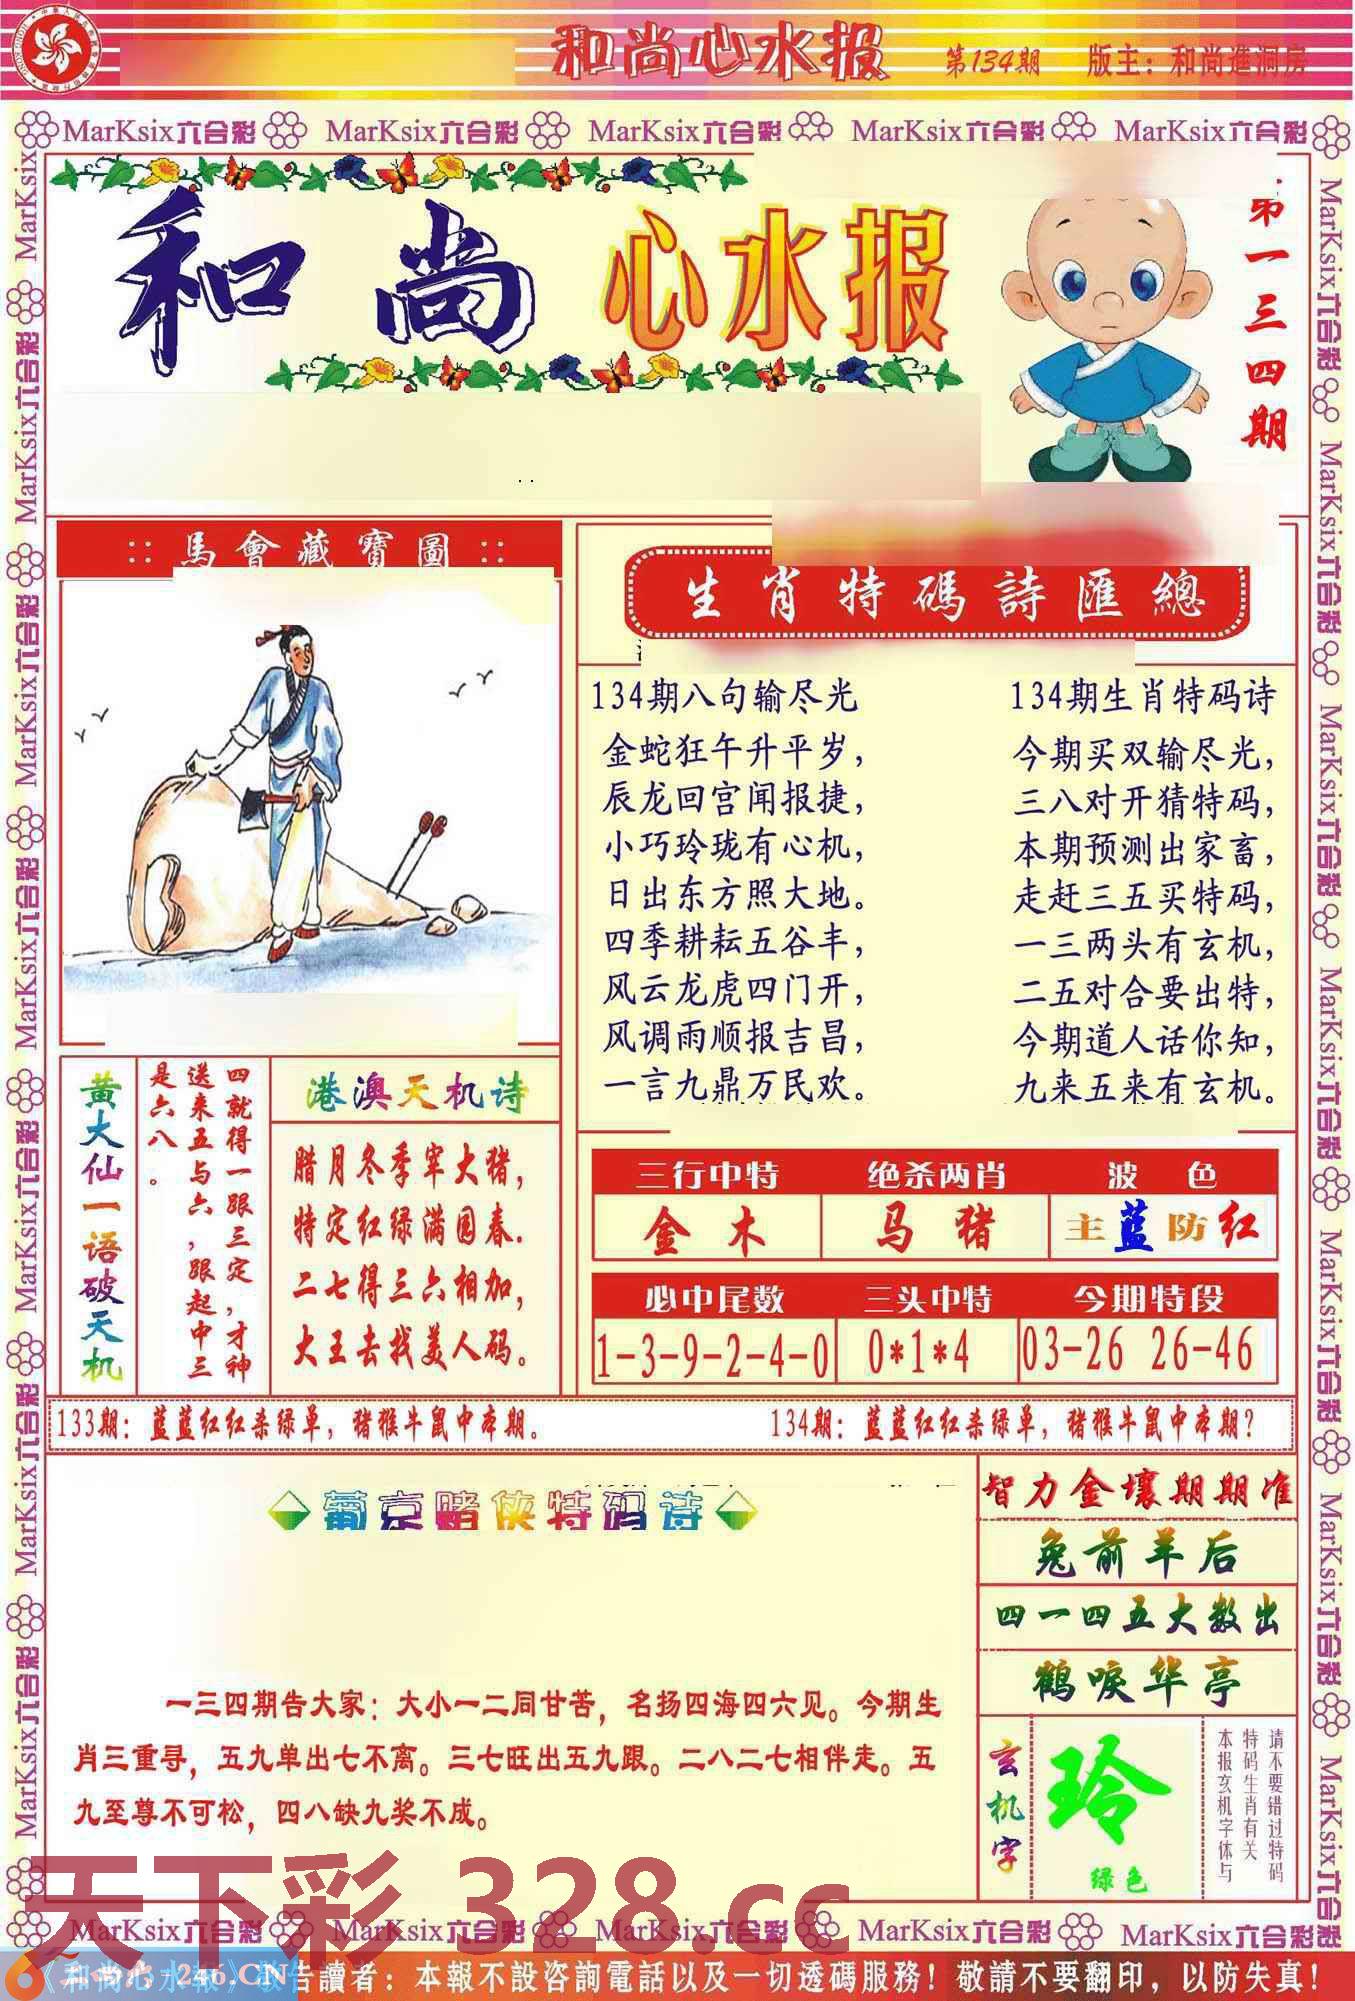 和尚心水报 第134期 版主：和尚進洞房
MarKsix六合彩 MarKsix六合彩 MarKsix六合彩 MarKsix六合彩 MarKsix六合彩
和尚 心水报
第一三四期
:: 馬會藏寶圖 ::
生肖特碼詩匯總
134期八句输尽光
金蛇狂午升平岁，
辰龙回宫闻报捷，
小巧玲珑有心机，
日出东方照大地。
四季耕耘五谷丰，
风云龙虎四门开，
风调雨顺报吉昌，
一言九鼎万民欢。
134期生肖特码诗
今期买双输尽光，
三八对开猜特码，
本期预测出家畜，
走赶三五买特码，
一三两头有玄机，
二五对合要出特，
今期道人话你知，
九来五来有玄机。
黄大仙一语破天机
四就得一跟三定，才神
送来五与六，跟起中三
是六八。
港澳天机诗
腊月冬季宰大猪，
特定红绿满园春.
二七得三六相加，
大王去找美人码。
三行中特 绝杀两肖 波色
金木 马猪 主蓝防红
必中尾数 三头中特 今期特段
1-3-9-2-4-0 0*1*4 03-26 26-46
133期：蓝蓝红红杀绿单，猪猴牛鼠中本期。 134期：蓝蓝红红杀绿单，猪猴牛鼠中本期？
葡京赌侠特码诗
一三四期告大家：大小一二同甘苦，名扬四海四六见。今期生
肖三重寻，五九单出七不离。三七旺出五九跟。二八二七相伴走。五
九至尊不可松，四八缺九奖不成。
智力金壤期期准
兔前羊后
四一四五大数出
鹤唳华亭
玄机字
玲
绿色
请不要错过特码
特码生肖有关
本报玄机字体与
天下彩 328.cc
MarKsix六合彩 MarKsix六合彩 MarKsix六合彩 MarKsix六合彩 MarKsix六合彩
246.CN
告讀者：本報不設咨詢電話以及一切透碼服務！敬請不要翻印，以防失真！